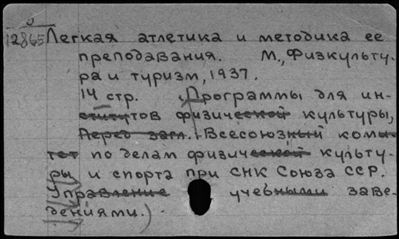 12865 Легкая атлетика и методика ее
преподавания. М., Физкульту-
ра и туризм, 1937.
14 стр. (Программы для ин-
ститутов физической культуры,
Перед загл.: Всесоюзный коми-
тет по делам физической культу-
ры и спорта при СНК Союза ССР.
Управление учебными заве-
дениями.)